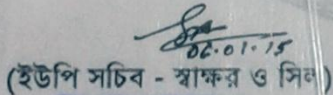 06.01.15
(ইউপি সচিব - স্বাক্ষর ও সিল)